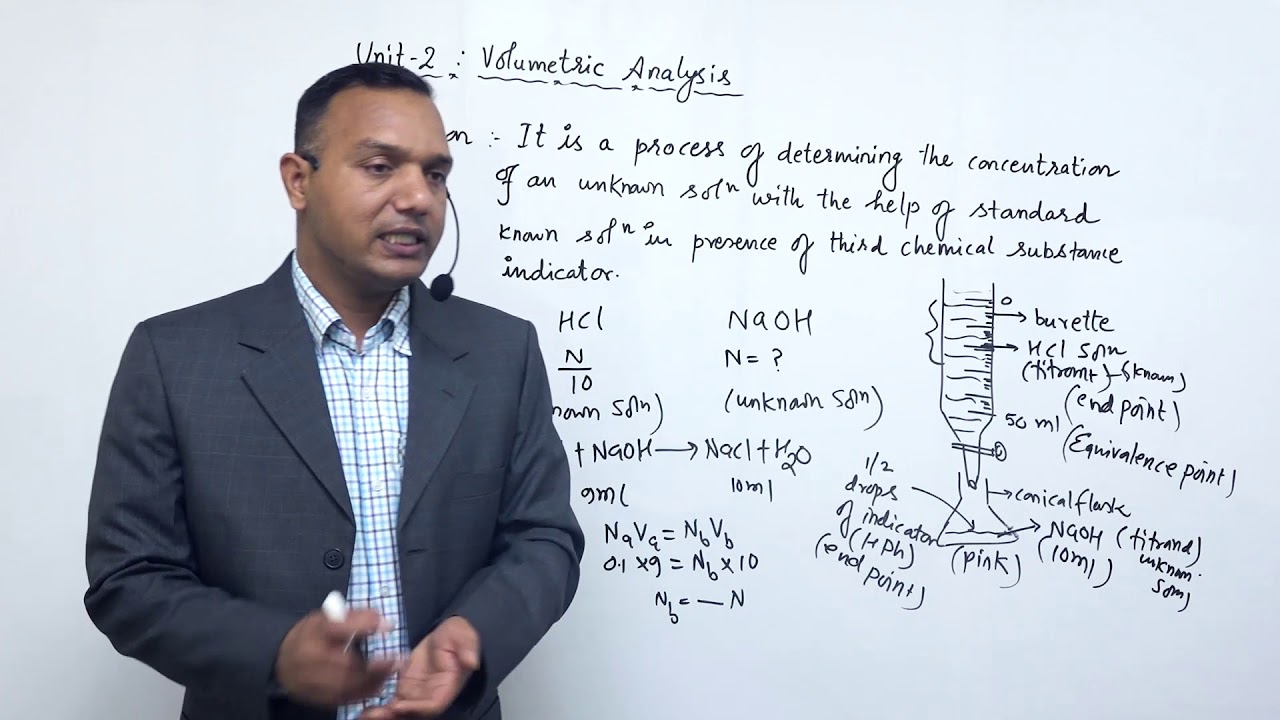 Unit-2 : Volumetric Analysis
on :- It is a process of determining the concentration
of an unknown solⁿ with the help of standard
known solⁿ in presence of third chemical substance
indicator.
HCl NaOH
N/10 N = ?
nown soln) (unknown soln)
+ NaOH → NaCl + H2O
9ml 10ml
NaVa = NbVb
0.1 × 9 = Nb × 10
Nb = — N
0
burette
HCl soln
(titrant) (known)
(end point)
50 ml
(Equivalence point)
1/2
drops
of indicator
(HPh)
(end point)
conical flask
NaOH (titrand)
(10ml) unknown
soln)
(pink)